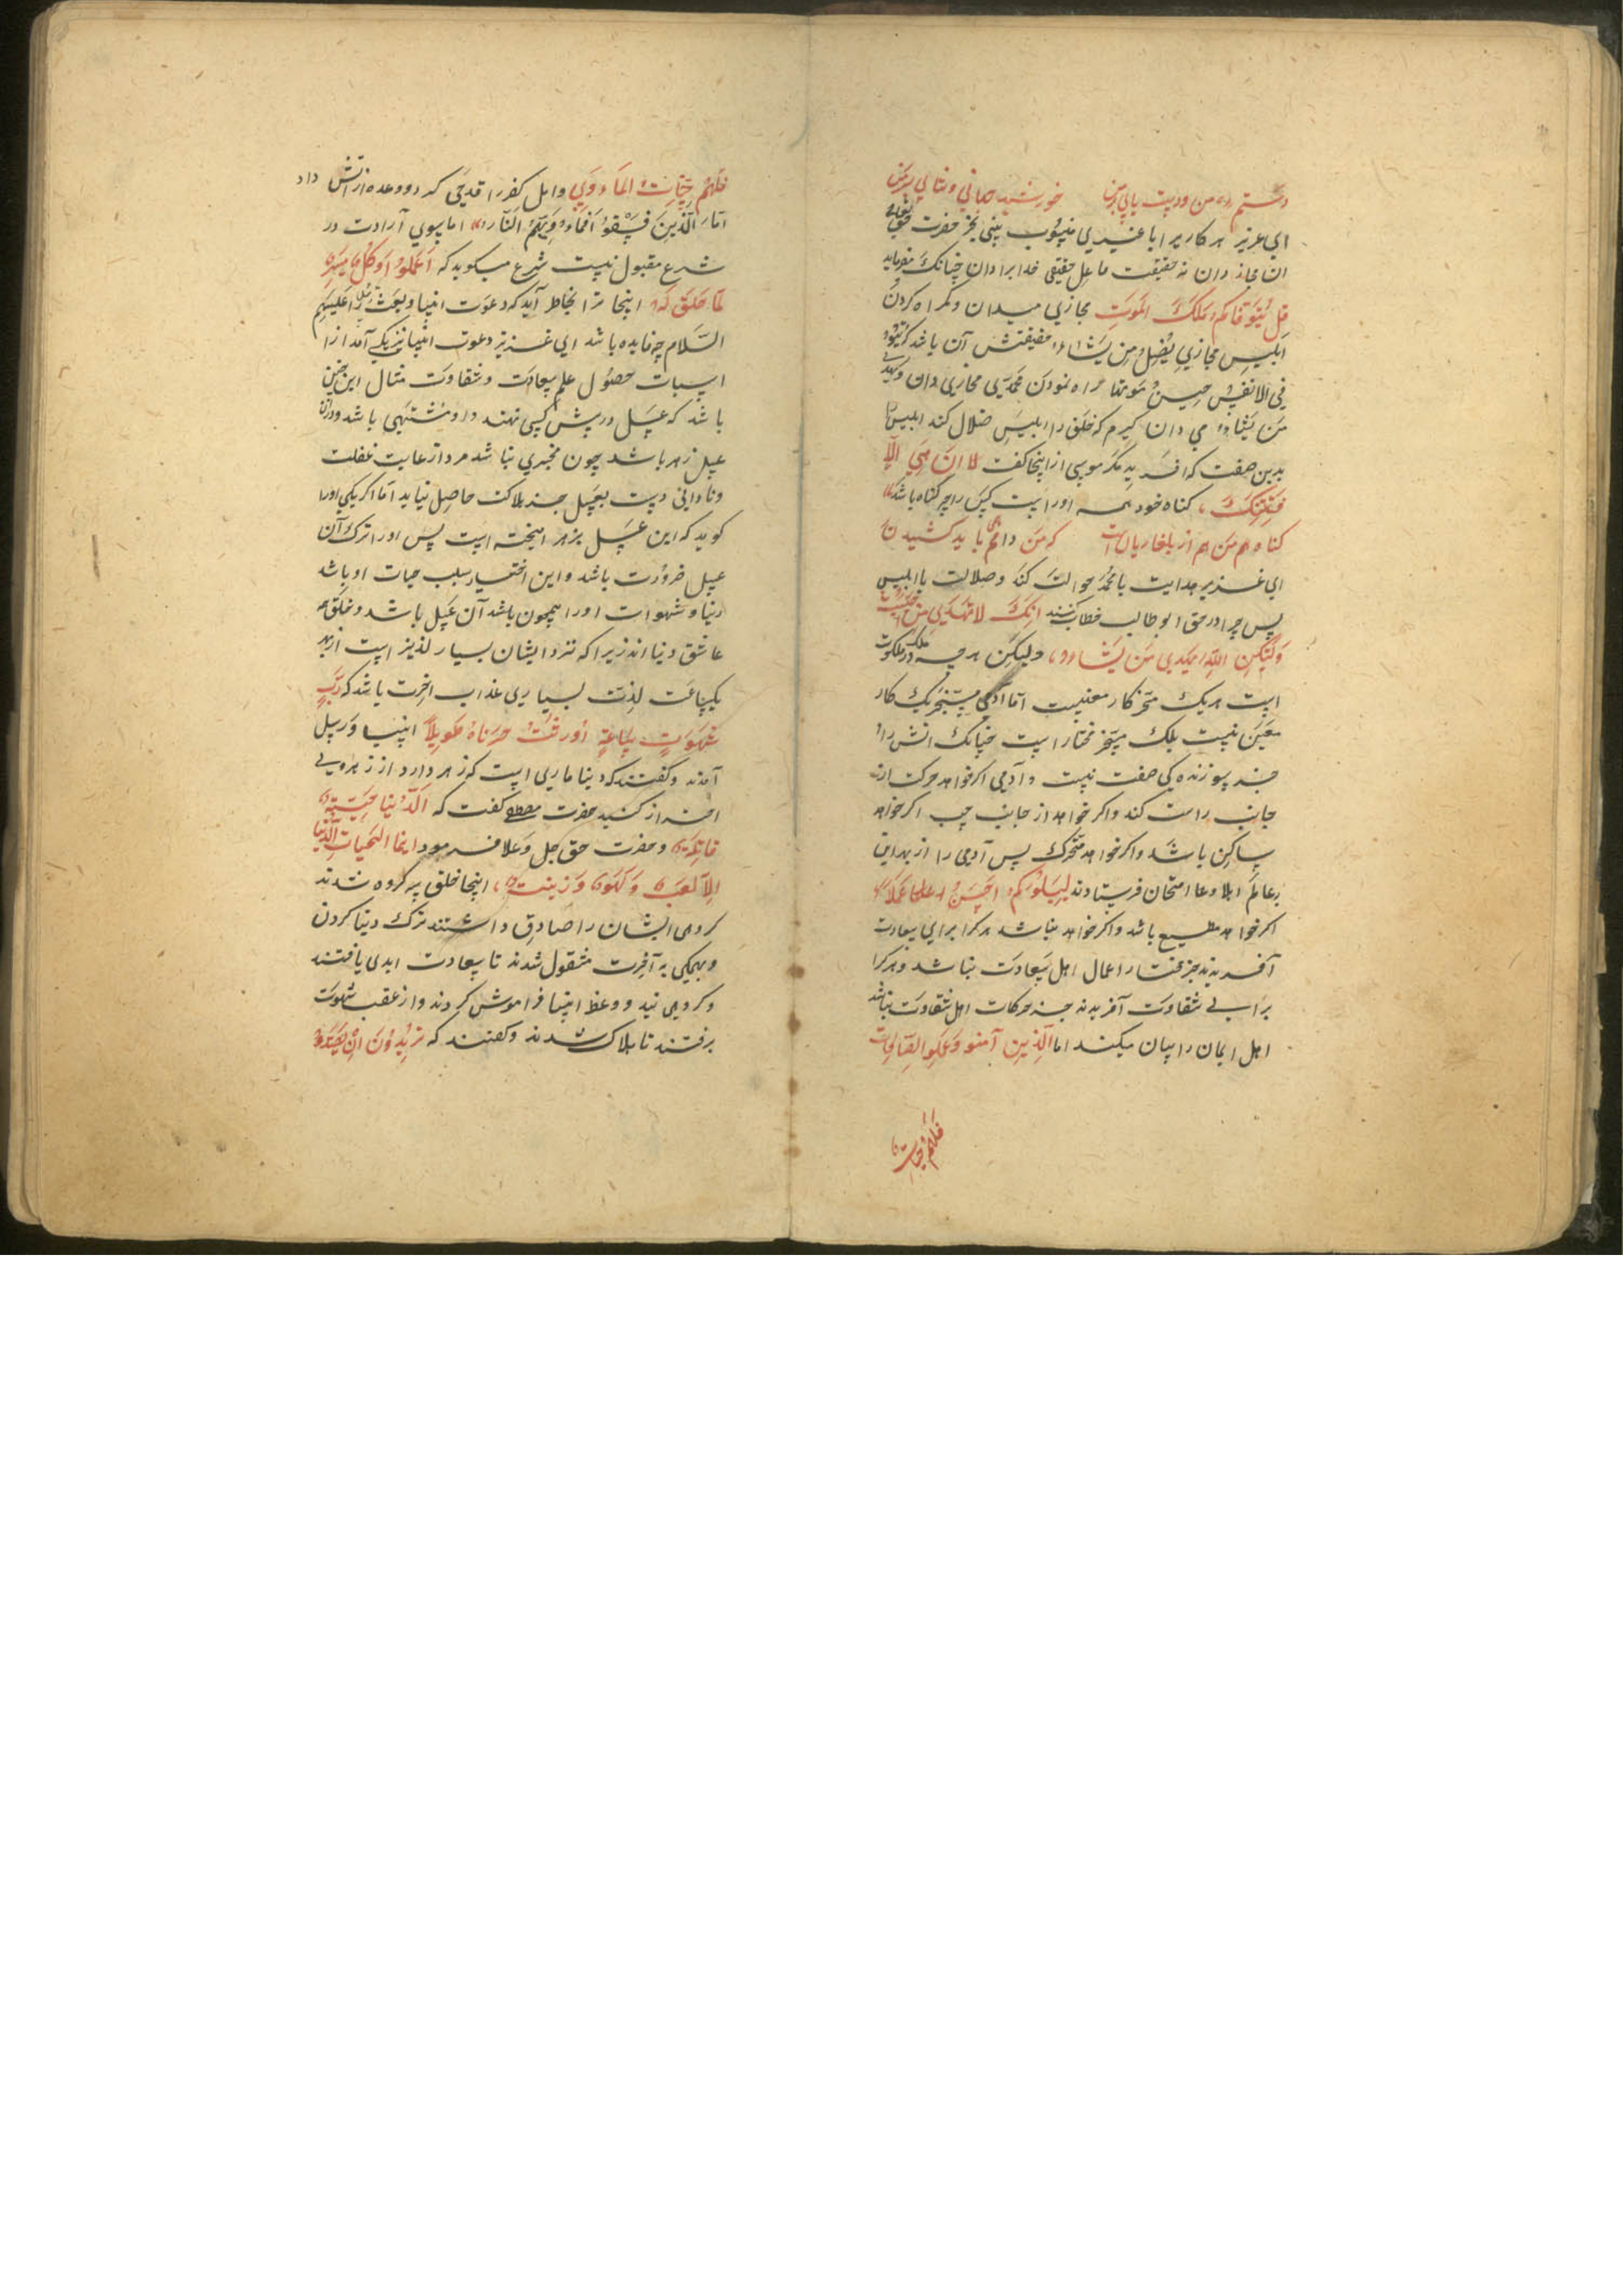 ای عزیز هر کاریرا با غیری منسوب بینی بجز حضرت حق تعالی
ان مجاز دان نه حقیقت فاعل حقیقی خدایرا دان چنانک میفرماید
قل یتوفاکم ملک الموت مجازی میدان و گمراه کردن
ابلیس مجازی یضل من یشاء حقیقتش آن باشد که
فی الانفس حین موتها راه نمودن محمد مجازی دان
من یشاء می دان گیرم که خلق را ابلیس ضلال کند ابلیس را
بدین صفت که افرید مگر موسی از اینجا کفت ان هی الا
فتنتک کناه خود همه اوراست کس را چه کناه باشد
ای عزیز هدایت با محمد حوالت کند و ضلالت با ابلیس
پس چرا در حق ابوطالب خطاب کنند انک لا تهدی من احببت
ولکن الله یهدی من یشاء ولیکن هرچه در ملک و ملکوت
است هریک مسخر کار معنیست اما آدمی مسخر یک کار
معین نیست بلک مسخر مختار است چنانک اتش را
جز سوزندگی صفت نیست و آدمی اکر خواهد حرکت از
جانب راست کند واکر خواهد از جانب چپ اکر خواهد
ساکن باشد واکر خواهد متحرک پس آدمی را از بهر این
بعالم ابلا و امتحان فرستادند لیبلوکم احسن عملا
اکر خواهد مطیع باشد واکر خواهد نباشد هر کرا برای سعادت
آفریدند جز مختار اعمال اهل سعادت نباشد و هر کرا
برای شقاوت آفریدند جز حرکات اهل شقاوت نباشد
اهل ایمان را بیان میکند اما الذین آمنو وعملو الصالحات
فلهم جنات
فلهم جنات الماوی واهل کفر را
اما الذین فسقو فماویهم النار اما
شرع مقبول نیست شرع میکوید که اعملو وکل میسر
لما خلق له اینجا ترا بخاطر آید که دعوت انبیا وبعث رسل علیهم
السلام چه فایده باشد ای عزیز دعوت انبیا نیز یکی آمد از
اسباب حصول علم سعادت و شقاوت مثال این چنین
باشد که عسل در پیش کسی نهند و او مشتهی باشد و در آن
عسل زهر باشد چون مخبری نباشد مرد از غایت غفلت
ونادانی دست بعسل جز هلاکت حاصل نیاید اما اکر یکی اورا
کوید که این عسل بزهر امیخته است پس اورا ترک آن
عسل ضرورت باشد واین اختیار سبب حیات او باشد
دنیا و شهوات اورا همچون باشد آن عسل باشد و خلق همه
عاشق دنیا اند زیرا که نزد ایشان بسیار لذیذ است از بهر
یکساعت لذت بسیاری عذاب اخرت باشد که رب
شهوت ساعة اورثت حزناه طویلا انبیا ورسل
آمدند و کفتند که دنیا ماری است که زهر دارد از زهر وی
احتراز کنید حضرت مصطفی کفت که الدنیا حیة
قاتلة و حضرت حق جل وعلا فرمود انما الحیات الدنیا
الا لعب ولهو وزینت اینجا خلق سه کروه شدند
کروهی ایشان را صادق داشتند ترک دنیا کردن
وبهمکی به آخرت مشغول شدند تا سعادت ابدی یافتند
وکروهی نیز ووعظ انبیا فراموش کردند واز عقب شهوت
برفتند تا هلاک شدند وکفتند که تریدون ان